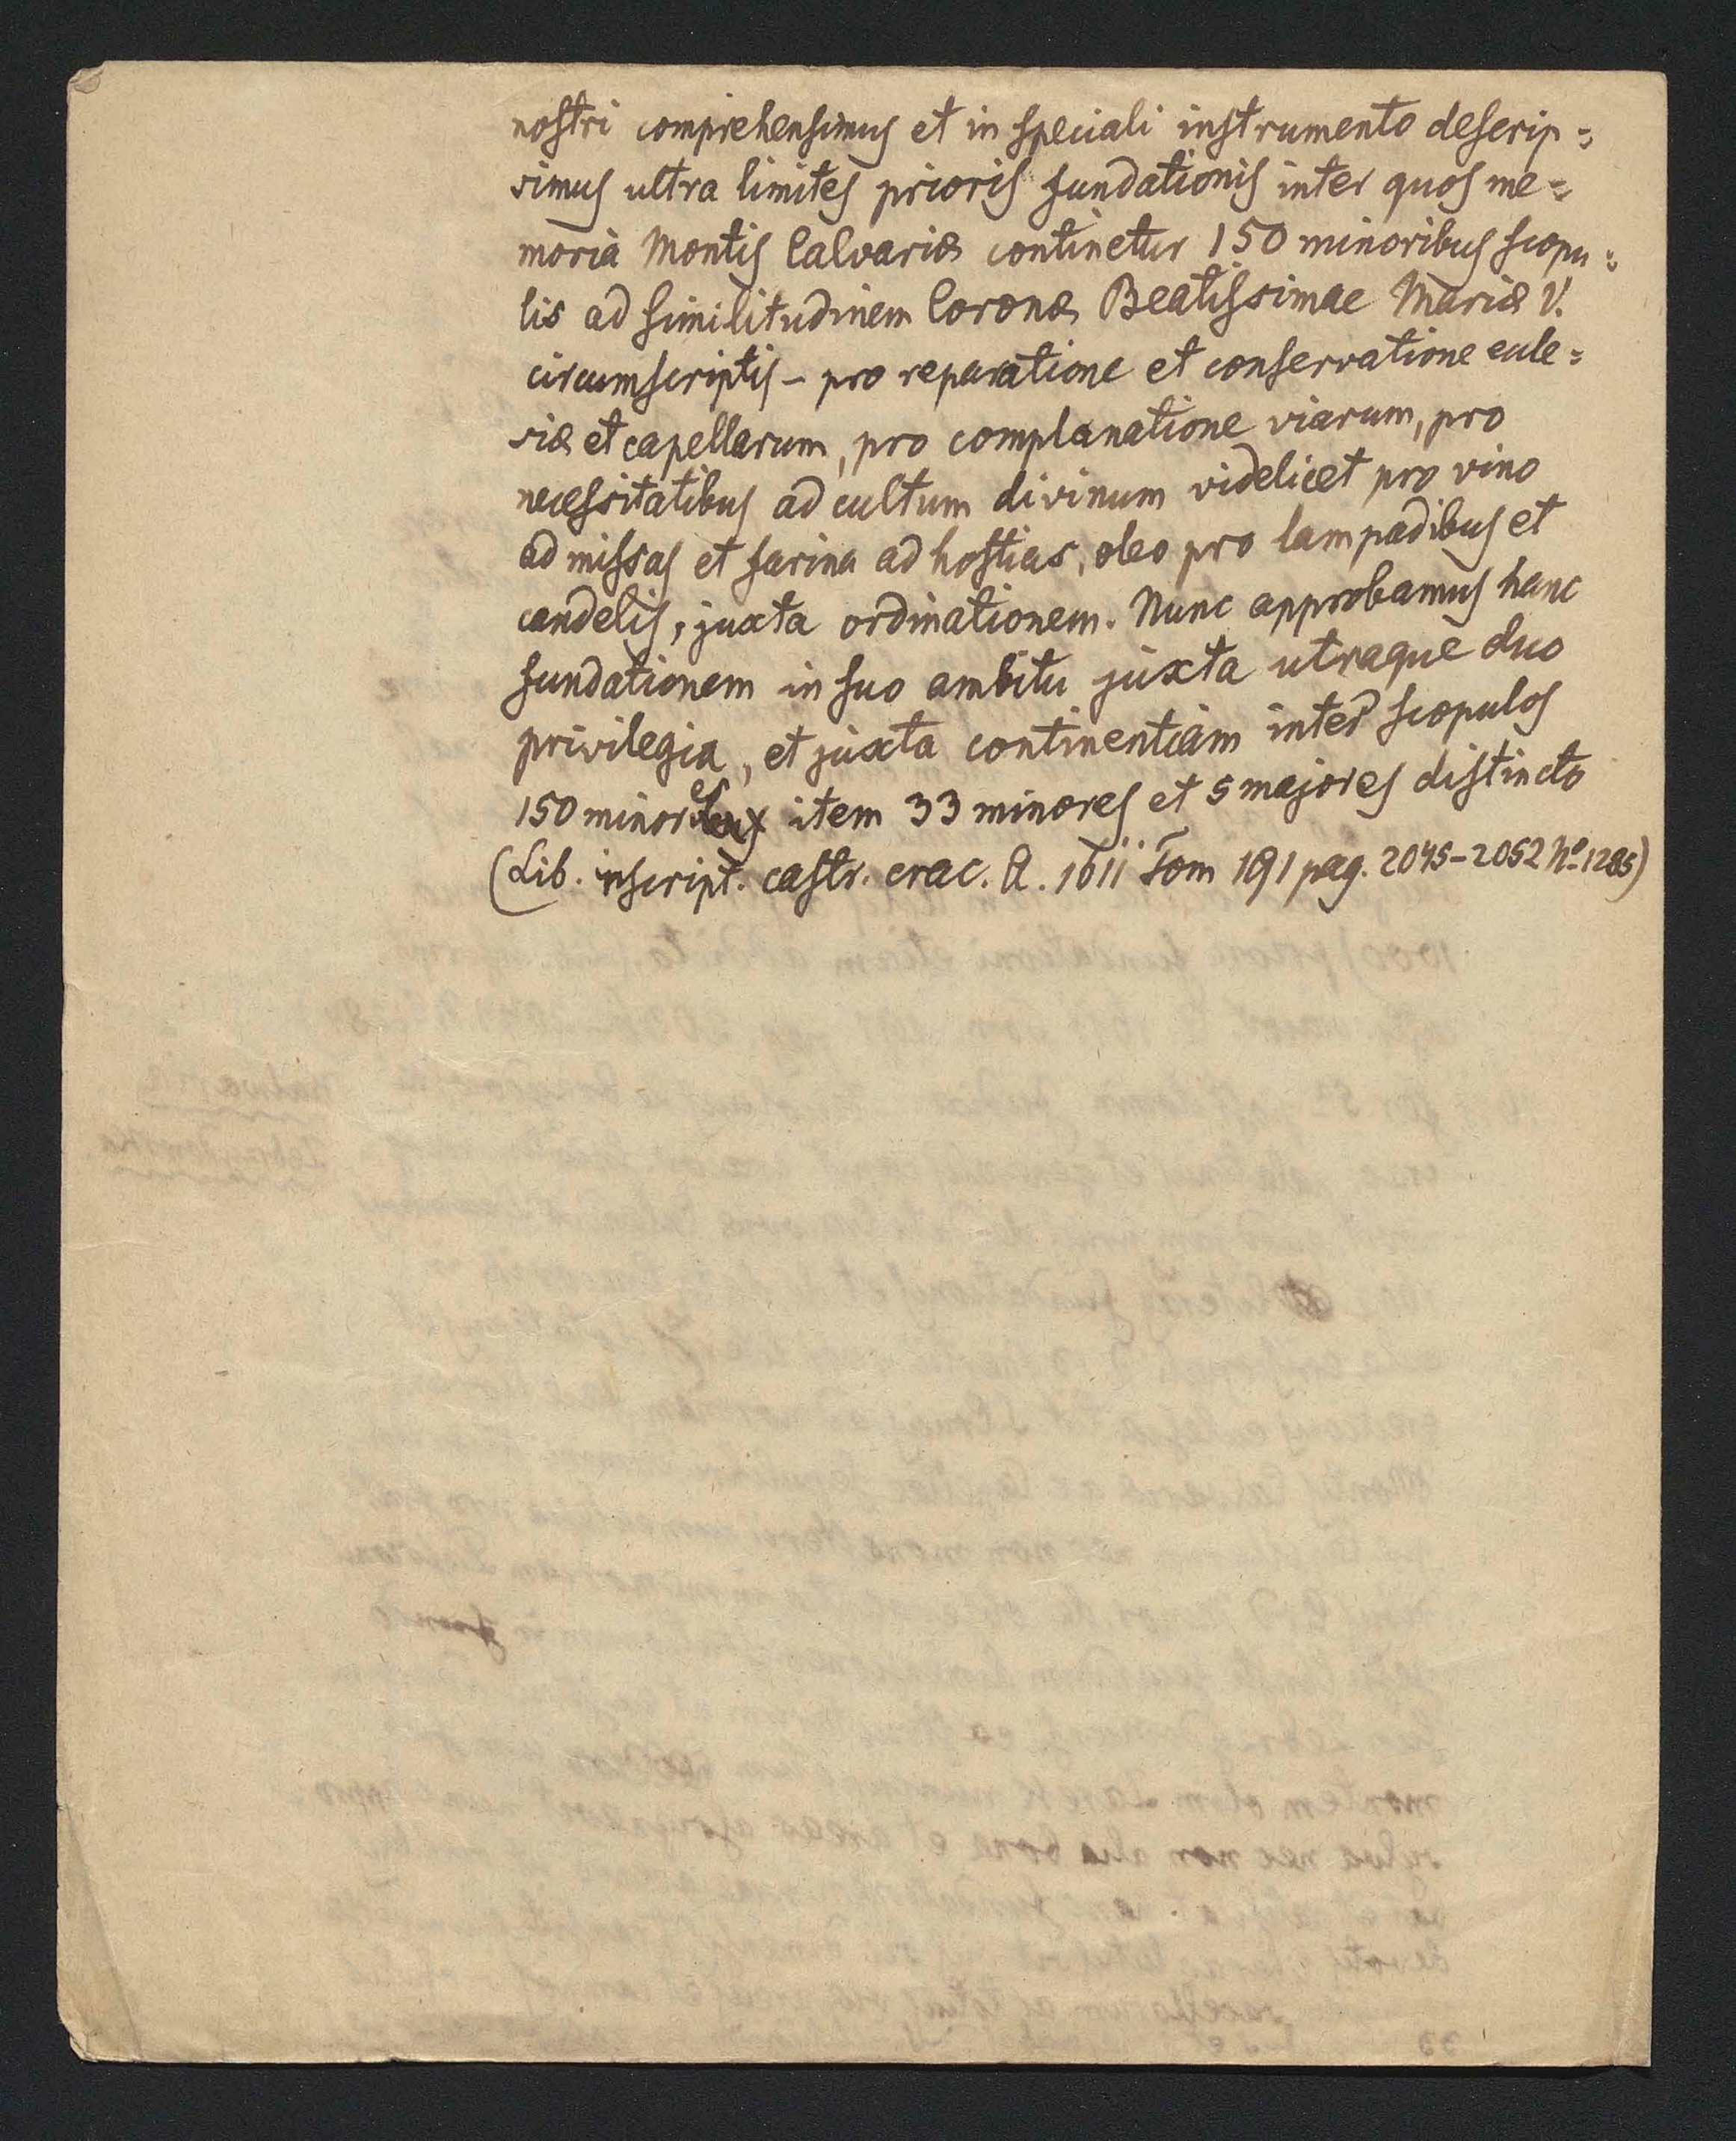 nostri comprehensimus et in speciali instrumento descrip=
simus ultra limites prioris fundationis inter quos me=
moria Montis Calvariæ continetur 150 minoribus scopu=
lis ad similitudinem Coronæ Beatissimae Mariæ V.
circumscriptis – pro reparatione et conservatione eccle=
siæ et capellarum, pro complanatione viarum, pro
necessitatibus ad cultum divinum videlicet pro vino
ad missas et farina ad hostias, oleo pro lampadibus et
candelis, juxta ordinationem. Nunc approbamus hanc
fundationem in suo ambitu juxta utraque duo
privilegia, et juxta continentiam inter scopulos
150 minores item 33 minores et 5 majores distincto
(Lib. inscript. castr. crac. A. 1611 Tom 191 pag. 2045–2052 Nº 1285)